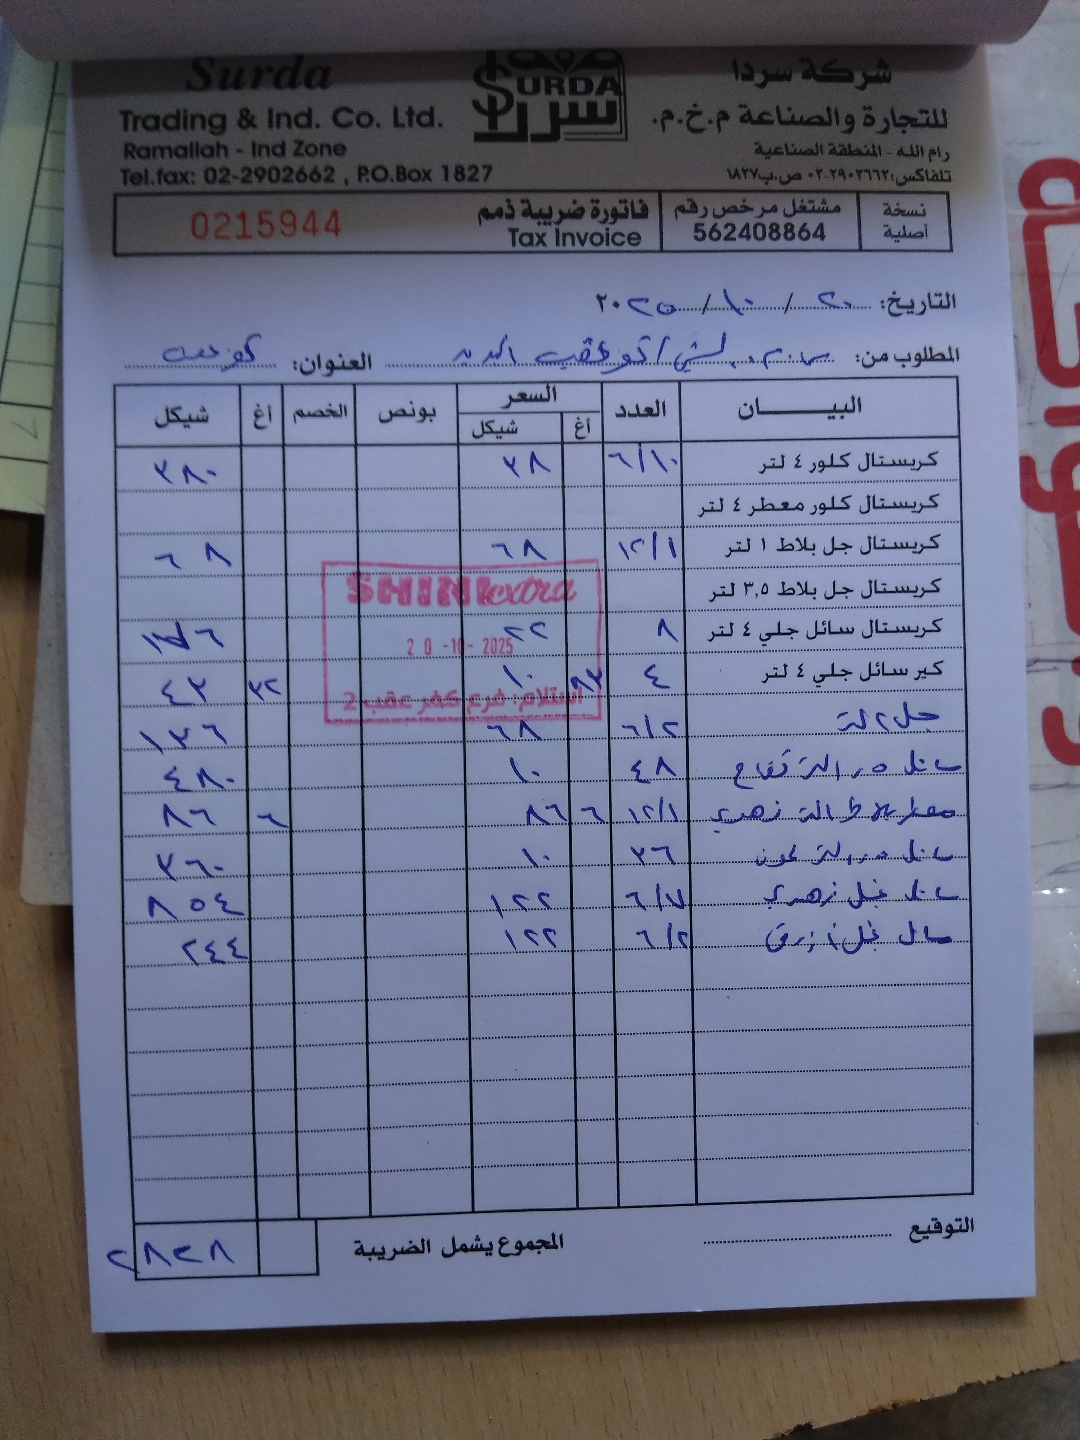 Surda
Trading & Ind. Co. Ltd.
Ramallah - Ind Zone
Tel.fax: 02-2902662 , P.O.Box 1827
SURDA
سردا
شركة سردا
للتجارة والصناعة م.خ.م.
رام الله - المنطقة الصناعية
تلفاكس: ٠٢-٢٩٠٢٦٦٢ ص.ب ١٨٢٧
نسخة أصلية
مشتغل مرخص رقم 562408864
فاتورة ضريبة ذمم Tax Invoice
0215944
التاريخ: ٢٠ / ١٠ / ٢٠٢٥
المطلوب من: العنوان:
البيـــــان العدد السعر بونص الخصم أغ شيكل
أغ شيكل
كريستال كلور ٤ لتر ٦/١٠ ٣٨ ٣٨٠
كريستال كلور معطر ٤ لتر
كريستال جل بلاط ١ لتر ١٢/١ ٦٨ ٦٨
كريستال جل بلاط ٣,٥ لتر
كريستال سائل جلي ٤ لتر ٨ ٢٢
كير سائل جلي ٤ لتر ٤ ٨٣ ١٠ ٣٢ ٤٣
جل ٢ لتر ٦/٢ ٦٨ ١٣٦
تفاح ٤٨ ١٠ ٤٨٠
معطر بلاط زهري ١٢/١ ٦ ٨٦ ٦ ٨٦
سائل ليمون ٣٦ ١٠ ٣٦٠
سائل غسيل زهري ٦/٧ ١٢٢ ٨٥٤
سائل غسيل ازرق ٦/٢ ١٢٢ ٢٤٤
SHINI extra
20-10-2025
استلام: فرع كفر عقب 2
التوقيع
المجموع يشمل الضريبة ٢٨٢٨